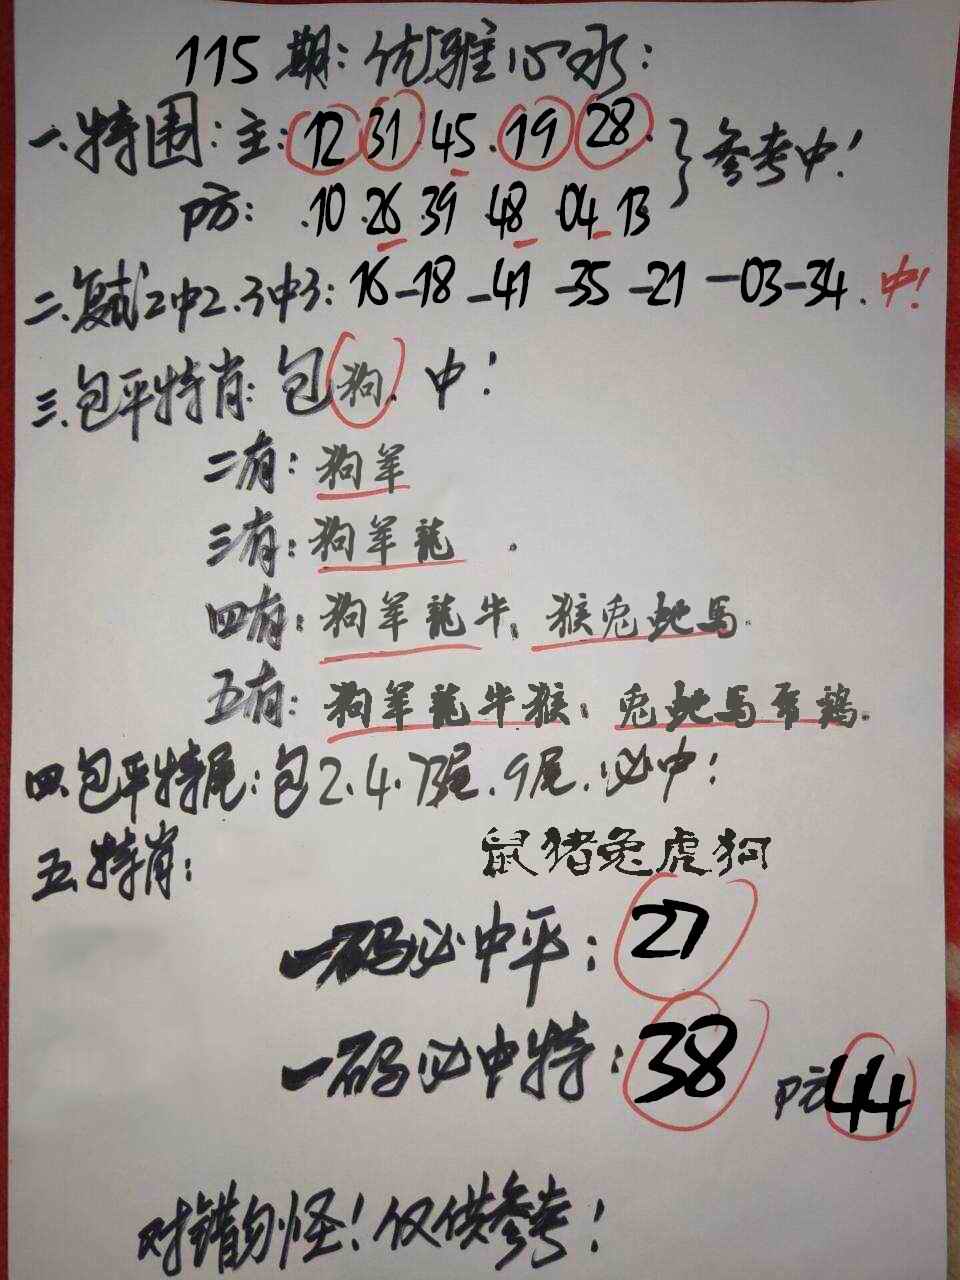 115期:优雅心水:
一.特围:主:12 31 45.19 28.}参考中!
防: .10 .26 39 .48 .04 .13
二.复式2中2.3中3: 16-18-41-35-21-03-34.中!
三.包平特肖:包狗.中!
二有:狗羊
三有:狗羊龍.
四有:狗羊龍牛;猴兔蛇馬.
五有:狗羊龍牛猴;兔蛇馬 鷄.
四.包平特尾:包2.4.7尾.9尾.必中!
五.特肖:鼠猪兔虎狗
一码必中平:27
一码必中特:38 防44
对错勿怪!仅供参考!